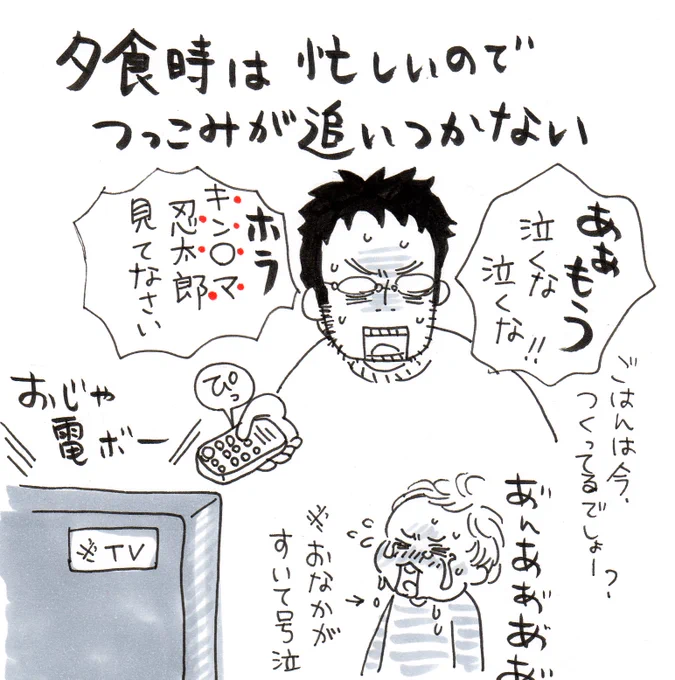 夕食時は 忙しいので
つっこみが追いつかない
あぁもう
泣くな
泣くな!!
ホラ
キン〇マ
忍太郎
見てなさい
ごはんは今、
つくってるでしょー?
ぴっ
おじゃ
電ボー
※TV
あ゛んあああ゛あ゛
※おなかが
すいて号泣